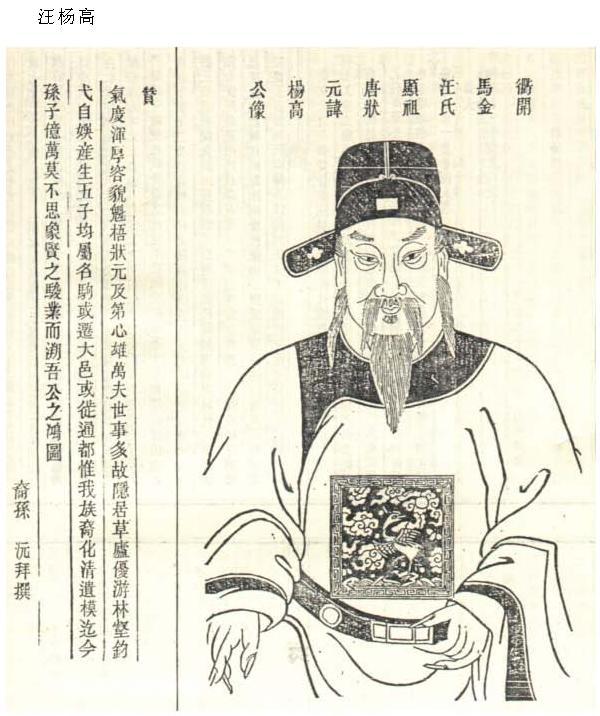 汪杨高
衢開
馬金
汪氏
顯祖
唐狀
元諱
楊高
公像
贊
氣度渾厚容貌魁梧狀元及第心雄萬夫世事多故隱居草廬優游林壑釣
弋自娛産生五子均屬名駒或遷大邑或徙通都惟我族裔化清遺模迄今
孫子億萬莫不思象賢之駿業而溯吾公之鴻圖
裔孫　沅拜撰